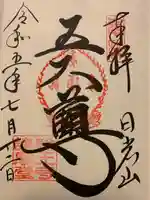 奉拝
日光山
五大尊
令和五年七月十二日